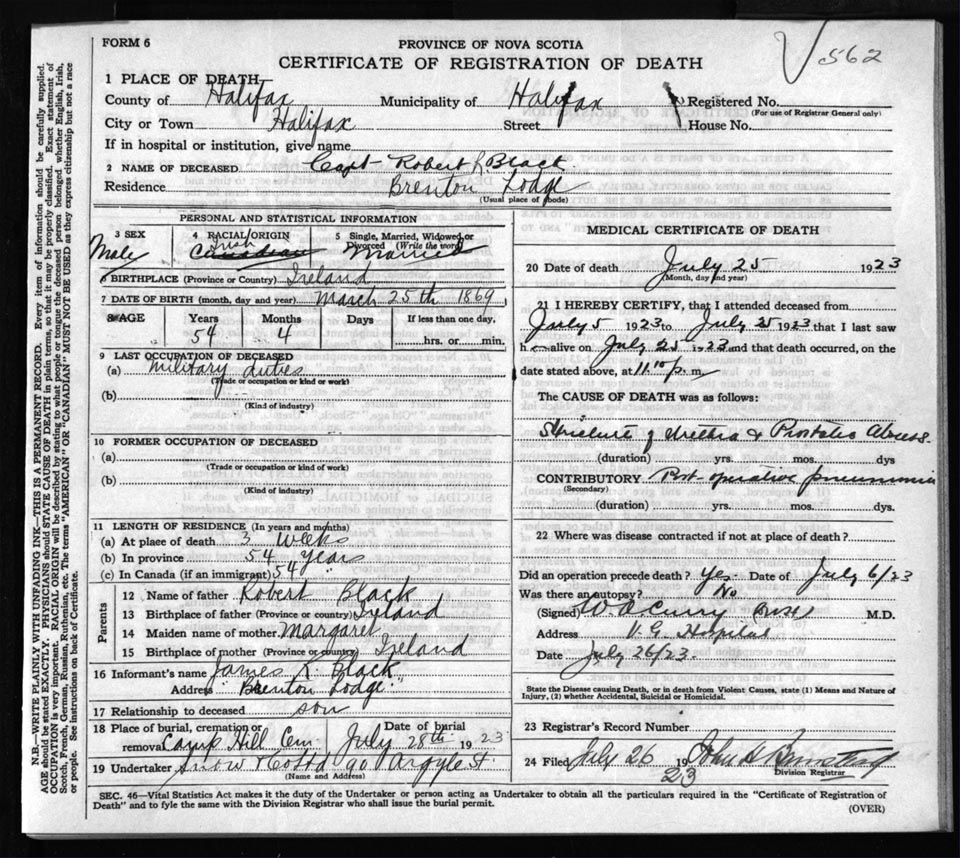 FORM 6
PROVINCE OF NOVA SCOTIA
562
CERTIFICATE OF REGISTRATION OF DEATH
1 PLACE OF DEATH
County of Halifax Municipality of Halifax Registered No.
(For use of Registrar General only)
City or Town Halifax Street House No.
If in hospital or institution, give name
2 NAME OF DECEASED Capt Robert R Black
Residence Brenton Lodge
(Usual place of abode)
PERSONAL AND STATISTICAL INFORMATION
3 SEX
Male
4 RACIAL ORIGIN
Irish
Canadian
5 Single, Married, Widowed or Divorced (Write the word)
Married
6 BIRTHPLACE (Province or Country) Ireland
7 DATE OF BIRTH (month, day and year) March 25th 1869
8 AGE Years Months Days If less than one day,
54 4 hrs. or min.
9 LAST OCCUPATION OF DECEASED
(a) Military duties
(Trade or occupation or kind or work)
(b)
(Kind of industry)
10 FORMER OCCUPATION OF DECEASED
(a)
(Trade or occupation or kind of work)
(b)
(Kind of industry)
11 LENGTH OF RESIDENCE (In years and months)
(a) At place of death 3 weeks
(b) In province 54 years
(c) In Canada (if an immigrant) 54 "
Parents
12 Name of father Robert Black
13 Birthplace of father (Province or country) Ireland
14 Maiden name of mother Margaret
15 Birthplace of mother (Province or country) Ireland
16 Informant's name James R. Black
Address "Brenton Lodge"
17 Relationship to deceased son
18 Place of burial, cremation or Date of burial
removal Camp Hill Cem July 28th 1923
19 Undertaker Snow & Co Ltd 90 Argyle St.
(Name and Address)
MEDICAL CERTIFICATE OF DEATH
20 Date of death July 25 1923
(Month, day and year)
21 I HEREBY CERTIFY, that I attended deceased from
July 5 1923 to July 25 1923 that I last saw
h alive on July 25 1923 and that death occurred, on the
date stated above, at 11.10 p. m.
The CAUSE OF DEATH was as follows:
Stricture of Urethra & Prostatic Abscess.
(duration) yrs. mos. dys
CONTRIBUTORY Post-operative pneumonia
(Secondary)
(duration) yrs. mos. dys.
22 Where was disease contracted if not at place of death?
Did an operation precede death? Yes. Date of July 6/23
Was there an autopsy? No
(Signed) W. A. Curry M.D.
Address V. G. Hospital
Date July 26/23.
State the Disease causing Death, or in death from Violent Causes, state (1) Means and Nature of
Injury, (2) whether Accidental, Suicidal or Homicidal.
23 Registrar's Record Number
24 Filed July 26 1923 John H
Division Registrar
SEC. 46—Vital Statistics Act makes it the duty of the Undertaker or person acting as Undertaker to obtain all the particulars required in the "Certificate of Registration of
Death" and to fyle the same with the Division Registrar who shall issue the burial permit.
(OVER)
N.B.—WRITE PLAINLY WITH UNFADING INK—THIS IS A PERMANENT RECORD. Every item of information should be carefully supplied.
AGE should be stated EXACTLY. PHYSICIANS should STATE CAUSE OF DEATH in plain terms, so that it may be properly classified. Exact statement of
OCCUPATION is very important. RACIAL ORIGIN will be described by stating to what people or tongue the deceased person belonged whether English, Irish,
Scotch, French, German, Russian, Ruthenian, etc. The terms "AMERICAN" OR "CANADIAN" MUST NOT BE USED as they express citizenship but not a race
or people. See instructions on back of Certificate.